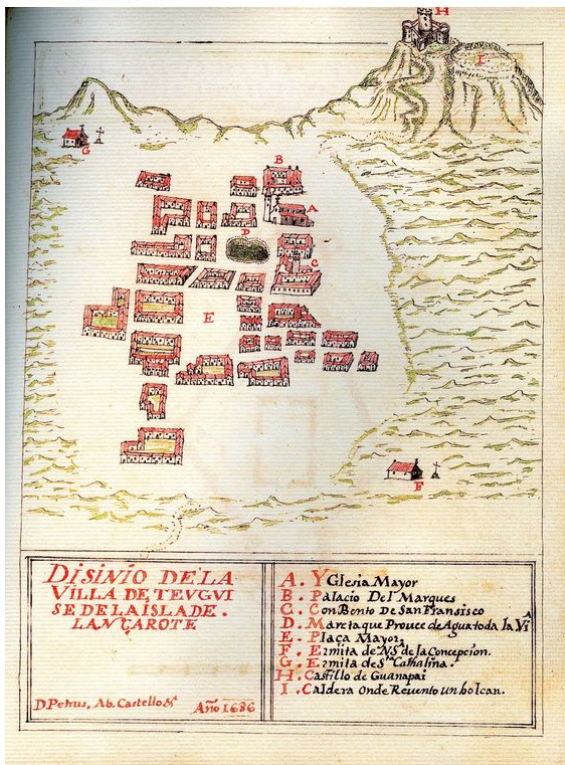 H
I
G
B
A
D
C
E
F
DISINIO DE LA
VILLA DE TEVGVI
SE DE LA ISLA DE.
LANÇAROTE
D Petrus, Ab. Castello &ª
Año 1686
A. YGlesia Mayor
B. Palacio Del Marques
C. ConBento De San Fransisco
D. Mareta que Prouee de Agua toda la Viª
E. Plaça Mayor,
F. Ermita de Nª Sª de la Concepcion.
G. Ermita de Stª Cathalina.
H. Castillo de Guanapai
I. Caldera onde Reuento un bolcan.